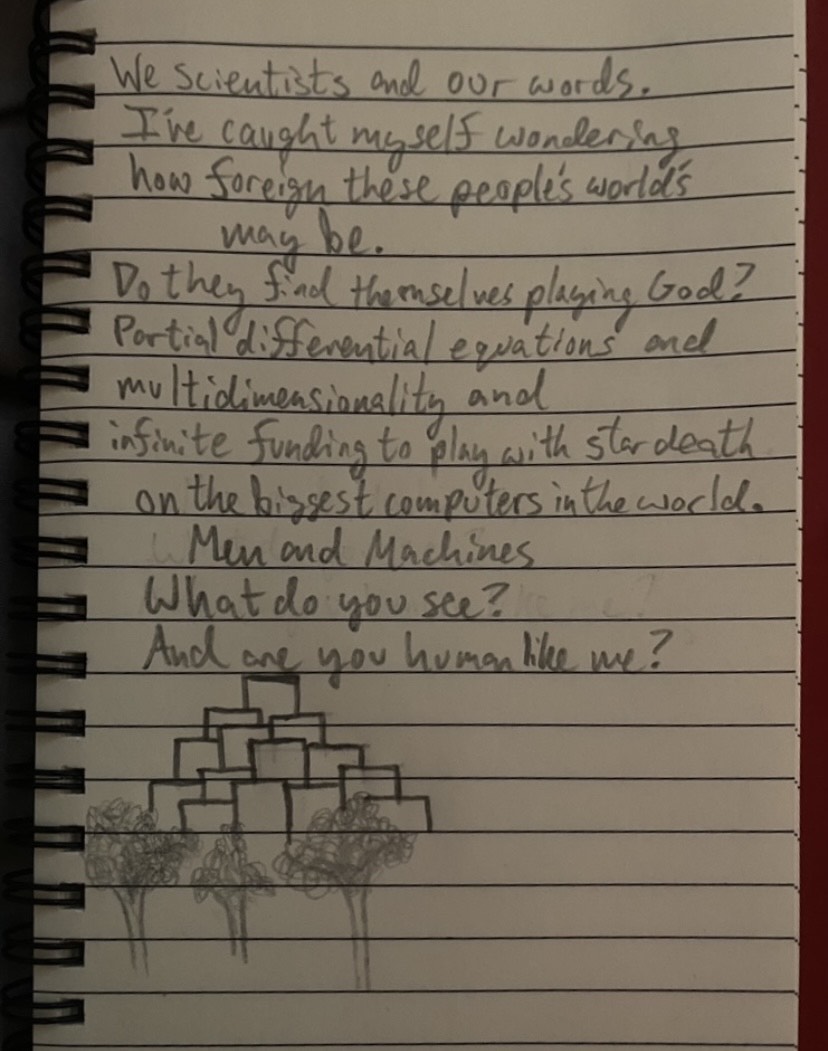 We scientists and our words.
I've caught myself wondering
how foreign these people's world's
may be.
Do they find themselves playing God?
Partial differential equations and
multidimensionality and
infinite funding to play with star death
on the biggest computers in the world.
Men and Machines
What do you see?
And are you human like me?